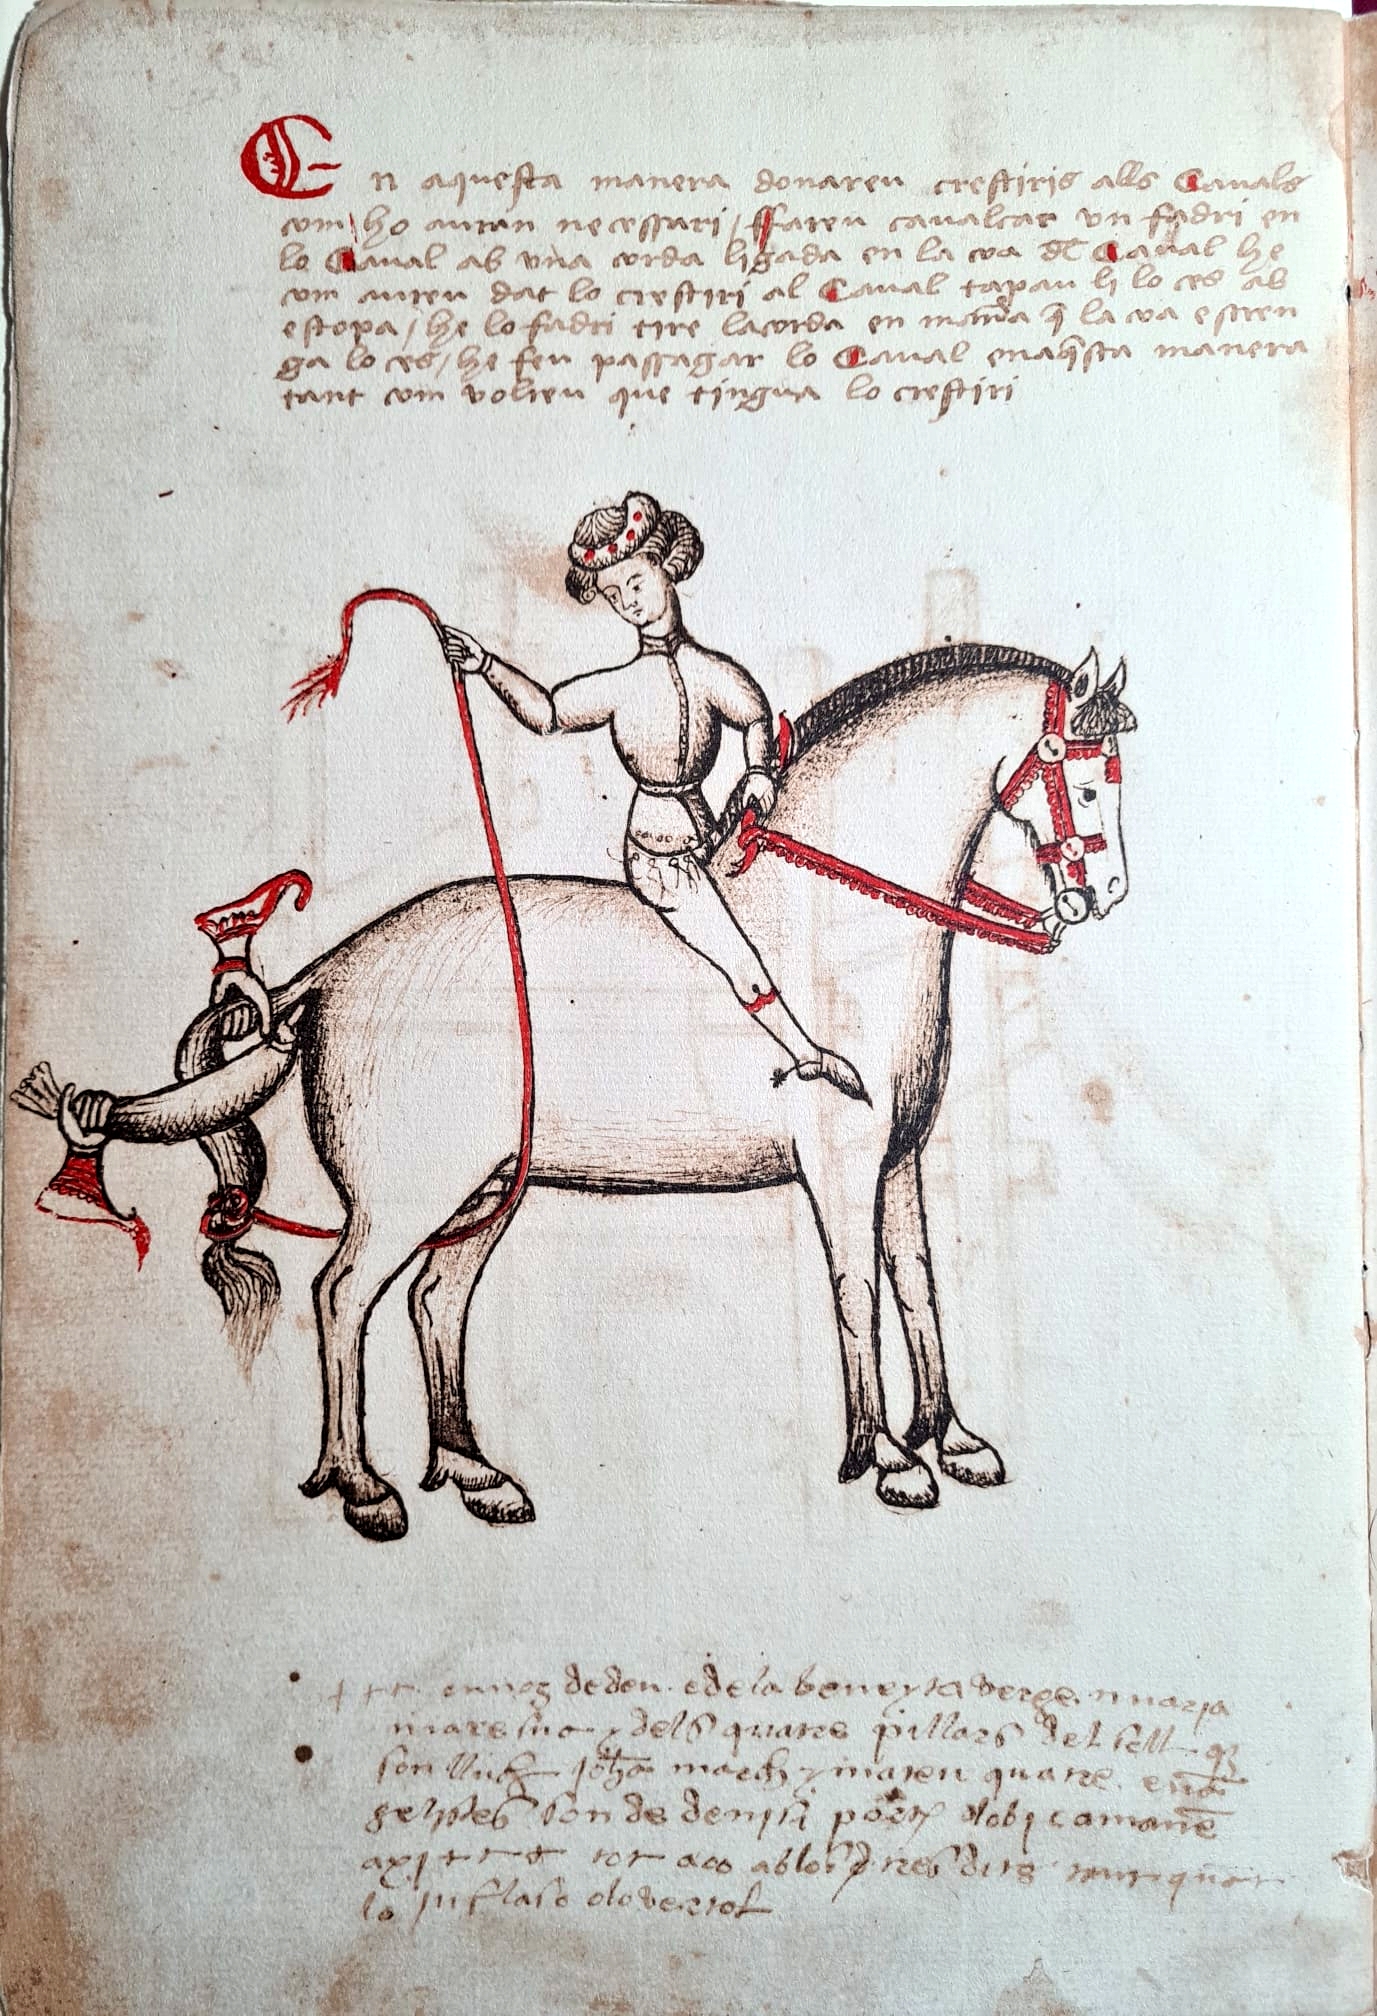 En aquesta manera donareu crestiris alls Cavals
com ho auran necessari / ffareu caualcar vn fadri en
lo Caual ab vna corda ligada en la coa dl Caual he
com aureu dat lo crestiri al Caual tapau li lo ces ab
estopa / he lo fadri tire lacorda en manra q la coa estren
ga lo ces / he feu passagar lo Caual enaqsta manera
tant com volreu que tingua lo crestiri
+ t t en nog de deu e de la beneyta verge maria
mare sua y dels quatre pillars del sell q
son lluch joha march y mateu quatre
gelistes son de deu
axi + t t tot aco ablos dits
lo